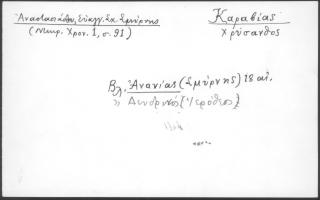 Ἀναστασιάδη, Εὐαγγ. Σχ Σμύρνης
(Μικρ. Χρον. 1, σ. 91)
Καραβίας
Χρύσανθος
Βλ. Ἀνανίας (Σμύρνης) 18 αἰ.
» Λευδρινός (Ἱερόθεος)